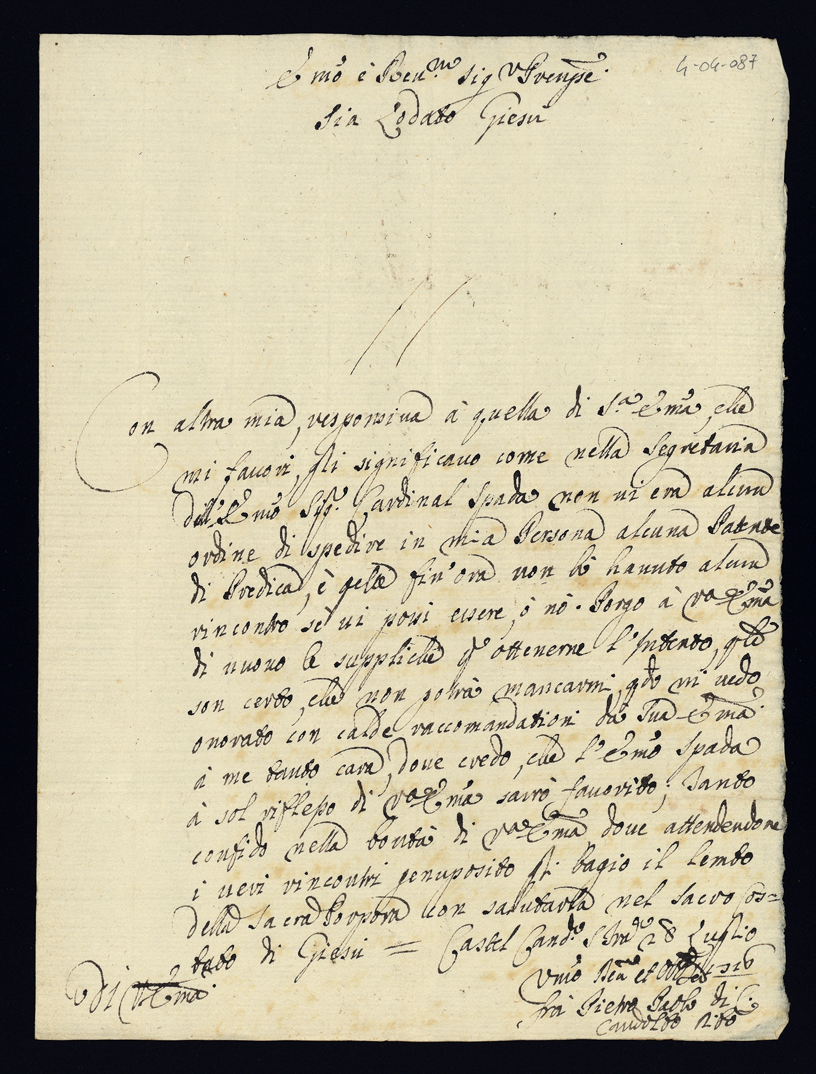 4-04-087
Emo è Reu.mo Sig.r
Sia Lodato Giesu
Con altra mia, responsiua à quella di S.a Ema, che
mi fauorì, gli significauo come nella Segretaria
dell'Emo Sig.r Cardinal Spada non ui era alcun
ordine di spedire in mia Persona alcuna Patente
di Predica, è fin'ora non hò hauuto alcun
rincontro se ui possi essere, ò nò. Porgo à V.a Ema
di nuouo le suppliche p ottenerne l'Intento,
son certo, che non potrà mancarmi, mi uedo
onorato con calde raccomandationi da Sua Ema
à me tanto cara, doue credo, che l'Emo Spada
à sol riflesso di V.a Ema sarrò fauorito; Tanto
confido nella bontà di V.a Ema doue attendendone
i ueri rincontri genuposito bagio il lembo
della Sacra Porpora con salutarla nel Sacro Cos=
tato di Giesu = Castel Cand.o 28 Luglio
Vmo 1716
frà Pietro Paolo di C.
Candoldo